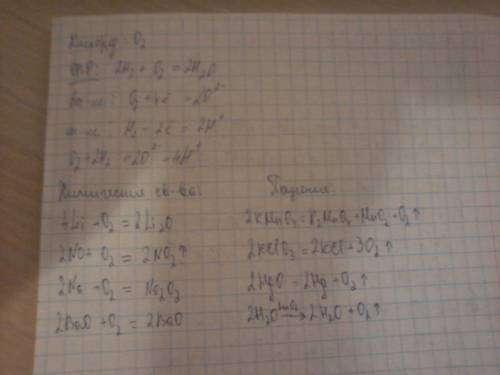 Кислород: O₂
ОВР: 2H₂ + O₂ = 2H₂O
O₂ + 4e = 2O²⁻
H₂ - 2e = 2H⁺
O₂ + 2H₂ = 2O²⁻ + 4H⁺
Химические св-ва:
4Li + O₂ = 2Li₂O
2NO + O₂ = 2NO₂↑
2Na + O₂ = Na₂O₂
2BaO + O₂ = 2BaO
2KMnO₄ = K₂MnO₄ + MnO₂ + O₂↑
2KClO₃ = 2KCl + 3O₂↑
2HgO = 2Hg + O₂↑